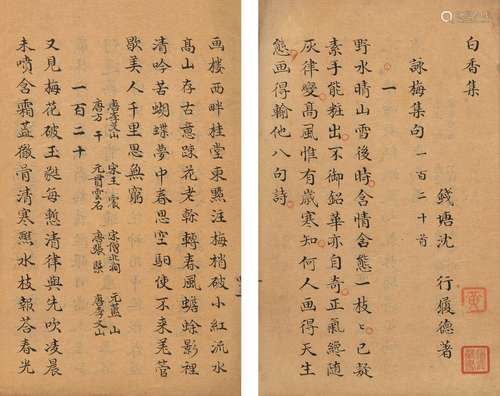 白香集
詠梅集句 一百二十首
錢塘沈 行履德著
一
野水晴山雪後時含情含態一枝〻已疑
素手能粧出不御鉛華亦自奇正氣縂随
灰律變髙風惟有歲寒知何人画得天生
態画得輸他八句詩
画楼西畔桂堂東㸃注梅梢破小紅流水
髙山存古意踈花老榦轉春風蟾蜍影裡
清吟苦蝴蝶夢中春思空駅使不来羌管
歇美人千里思無窮
唐李義山 宋王 宋僧北磵 元藍 山
唐方 干 元貫雲石 唐張 蠙 唐李文山
一百二十
又見梅花破玉㽔每慙清律與先吹凌晨
未噴含霜蕋徹骨清寒㸃水枝報荅春光